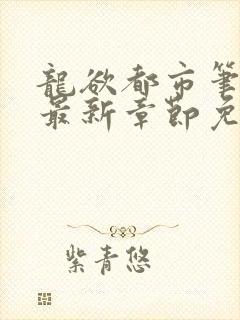 龍欲都市筆
最新章節免
紫青悠